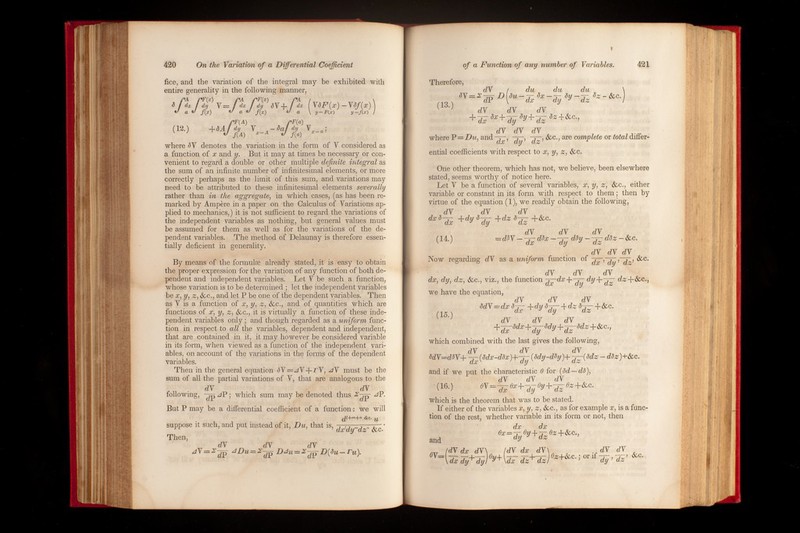 420 On the Variation of a Differential Coefficient
fice, and the variation of the integral may be exhibited with
entire generality in the following manner,
δ∫_a^A dx ∫_{f(x)}^{F(x)} dy V = ∫_a^A dx ∫_{f(x)}^{F(x)} dy δV + ∫_a^A dx (V_{y=F(x)} δF(x) − V_{y=f(x)} δf(x))
(12.) +δA∫_{f(A)}^{F(A)} dy V_{x=A} − δa∫_{f(a)}^{F(a)} dy V_{x=a};
where δV denotes the variation in the form of V considered as
a function of x and y. But it may at times be necessary or con-
venient to regard a double or other multiple definite integral as
the sum of an infinite number of infinitesimal elements, or more
correctly perhaps as the limit of this sum, and variations may
need to be attributed to these infinitesimal elements severally
rather than in the aggregate, in which cases, (as has been re-
marked by Ampère in a paper on the Calculus of Variations ap-
plied to mechanics,) it is not sufficient to regard the variations of
the independent variables as nothing, but general values must
be assumed for them as well as for the variations of the de-
pendent variables. The method of Delaunay is therefore essen-
tially deficient in generality.
By means of the formulæ already stated, it is easy to obtain
the proper expression for the variation of any function of both de-
pendent and independent variables. Let V be such a function,
whose variation is to be determined; let the independent variables
be x, y, z, &c., and let P be one of the dependent variables. Then
as V is a function of x, y, z, &c., and of quantities which are
functions of x, y, z, &c., it is virtually a function of these inde-
pendent variables only; and though regarded as a uniform func-
tion in respect to all the variables, dependent and independent,
that are contained in it, it may however be considered variable
in its form, when viewed as a function of the independent vari-
ables, on account of the variations in the forms of the dependent
variables.
Then in the general equation δV=ΔV+ΓV, ΔV must be the
sum of all the partial variations of V, that are analogous to the
following, dV/dP ΔP; which sum may be denoted thus Σ dV/dP ΔP.
But P may be a differential coefficient of a function: we will
suppose it such, and put instead of it, Du, that is,
Then,
ΔV=Σ dV/dP ΔDu=Σ dV/dP DΔu=Σ dV/dP D(δu−Γu).
of a Function of any number of Variables. 421
Therefore,
(13.) δV=Σ dV/dP D(δu − du/dx δx − du/dy δy − du/dz δz − &c.)
+ dV/dx δx + dV/dy δy + dV/dz δz + &c.,
where P=Du, and dV/dx, dV/dy, dV/dz, &c., are complete or total differ-
ential coefficients with respect to x, y, z, &c.
One other theorem, which has not, we believe, been elsewhere
stated, seems worthy of notice here.
Let V be a function of several variables, x, y, z, &c., either
variable or constant in its form with respect to them; then by
virtue of the equation (1), we readily obtain the following,
dx δ dV/dx + dy δ dV/dy + dz δ dV/dz + &c.
(14.) =dδV − dV/dx dδx − dV/dy dδy − dV/dz dδz − &c.
Now regarding dV as a uniform function of dV/dx, dV/dy, dV/dz, &c.
dx, dy, dz, &c., viz., the function dV/dx dx + dV/dy dy + dV/dz dz + &c.,
we have the equation,
(15.) δdV = dx δ dV/dx + dy δ dV/dy + dz δ dV/dz + &c.
+ dV/dx δdx + dV/dy δdy + dV/dz δdz + &c.,
which combined with the last gives the following,
δdV=dδV + dV/dx (δdx−dδx) + dV/dy (δdy−dδy) + dV/dz (δdz − dδz) + &c.
and if we put the characteristic θ for (δd−dδ),
(16.) θV = dV/dx θx + dV/dy θy + dV/dz θz + &c.
which is the theorem that was to be stated.
If either of the variables x, y, z, &c., as for example x, is a func-
tion of the rest, whether variable in its form or not, then
θx = dx/dy θy + dx/dz θz + &c.,
and
θV=(dV/dx dx/dy + dV/dy) θy + (dV/dx dx/dz + dV/dz) θz + &c.; or if dV/dy, dV/dz, &c.